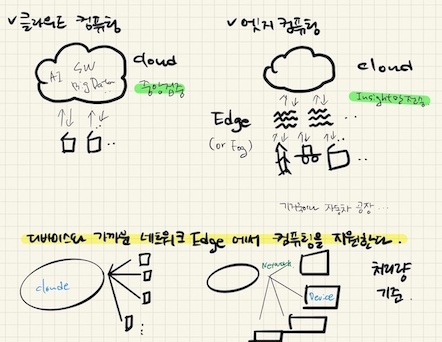 ✓ 클라우드 컴퓨팅
✓ 엣지 컴퓨팅
AI SW
Big Data
cloud
중앙집중
cloud
Insight만 전송
Edge
(or Fog)
자동차 공장 ...
디바이스와 가까운 네트워크 Edge 에서 컴퓨팅을 지원한다.
cloude
Network
Device
처리량
기준.